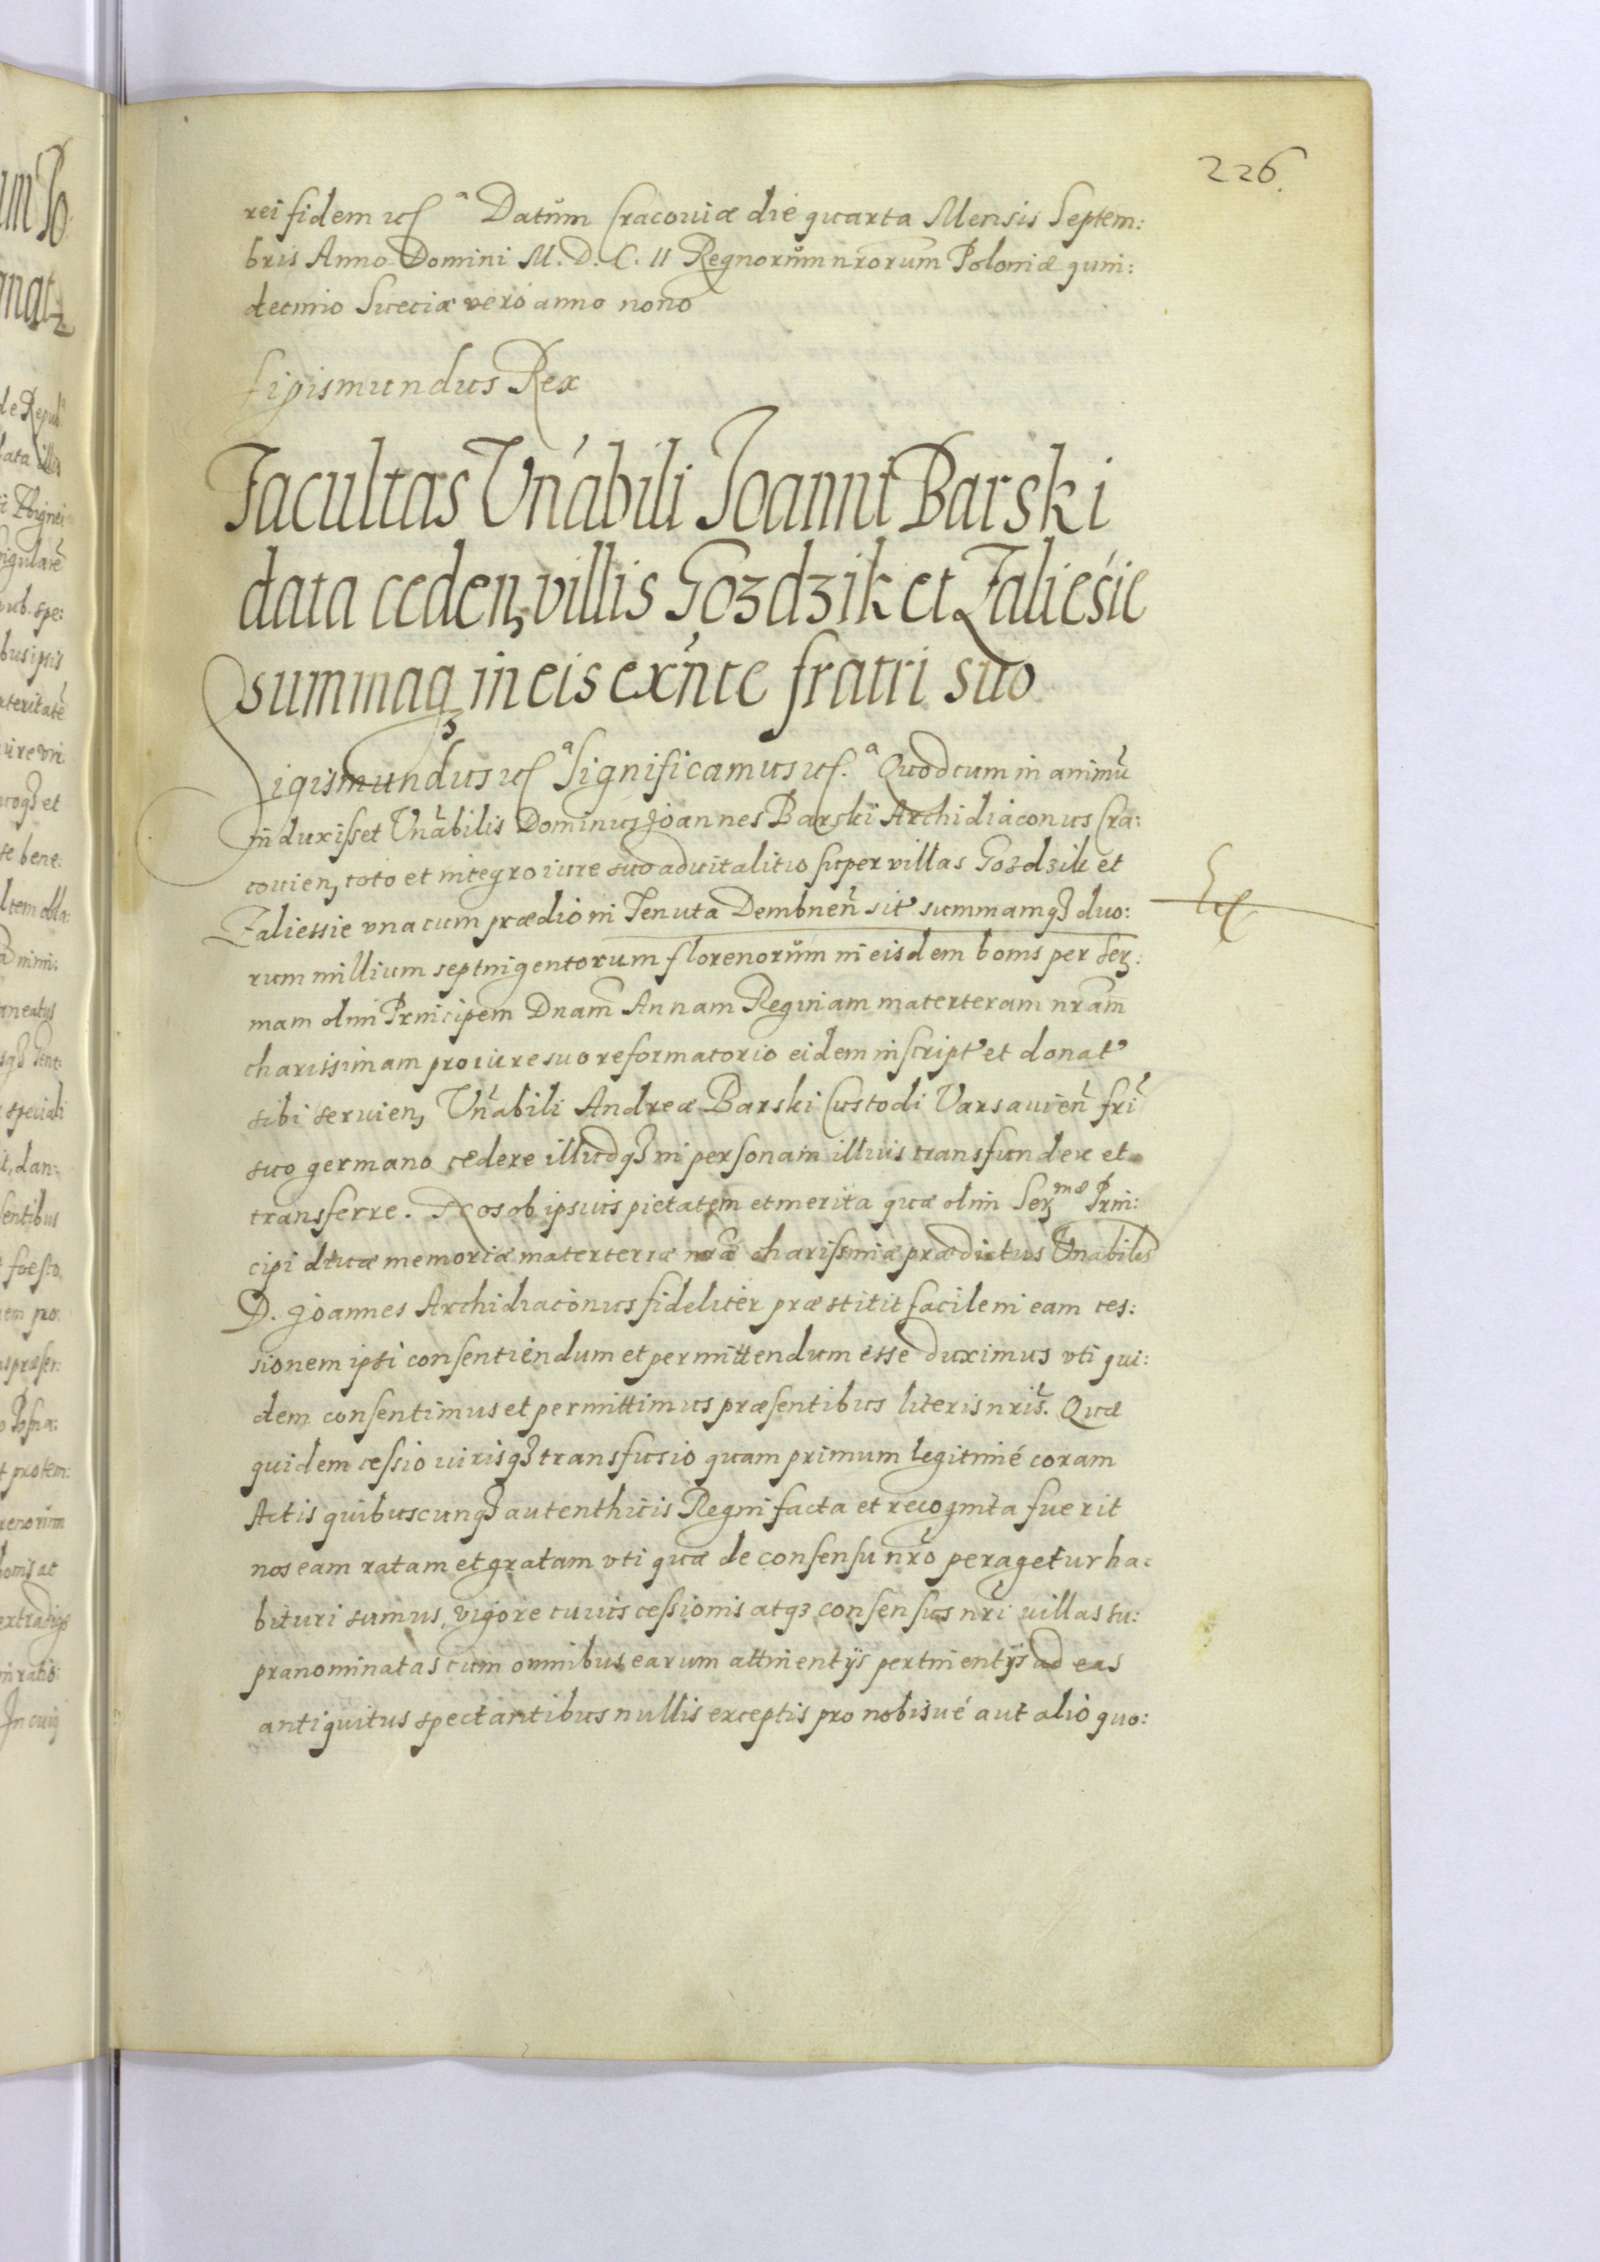 226.
rei fidem etc.ª Datum Cracouiæ die quarta Mensis Septem:
bris Anno Domini M. D. C. II Regnorum nrorum Poloniæ quin:
decimo Sueciæ vero anno nono
Sigismundus Rex
Facultas Vnabili Joanni Barski
data ceden, villis Gozdzik et Zaliesie
summaq3 in eis exnte fratri suo
Sigismundus etc.ª Significamus etc.ª Quod cum in animu
induxisset Vnabilis Dominus Joannes Barski Archidiaconus Cra:
couien, toto et integro iure suo aduitalitio super villas Gozdzik et
Zaliessie vna cum prædio in Tenuta Dembnen sit summamq3 duo:
rum millium septingentorum florenorum in eisdem bonis per Ser:
mam olim Principem Dnam Annam Reginam materteram nram
charissimam pro iure suo reformatorio eidem inscript et donat
sibi seruien, Vnabili Andreæ Barski Custodi Varsauien fri
suo germano cedere illudq3 in personam illius transfundere et
transferre. Nos ob ipsius pietatem et merita quæ olim Ser^mæ Prin:
cipi diuæ memoriæ materteræ nræ charissimæ prædictus Vnabilis
D. Joannes Archidiaconus fideliter præstitit facile in eam ces:
sionem ipsi consentiendum et permittendum esse duximus vti qui:
dem consentimus et permittimus præsentibus literis nris. Quæ
quidem cessio iurisq3 transfusio quam primum legitimé coram
Actis quibuscunq3 autenthicis Regni facta et recognita fuerit
nos eam ratam et gratam vti quæ de consensu nro peragetur ha:
bituri sumus, vigore cuius cessionis atq3 consensus nri villas su:
pranominatas cum omnibus earum attinentijs pertinentijs ad eas
antiquitus spectantibus nullis exceptis pro nobisué aut alio quo: